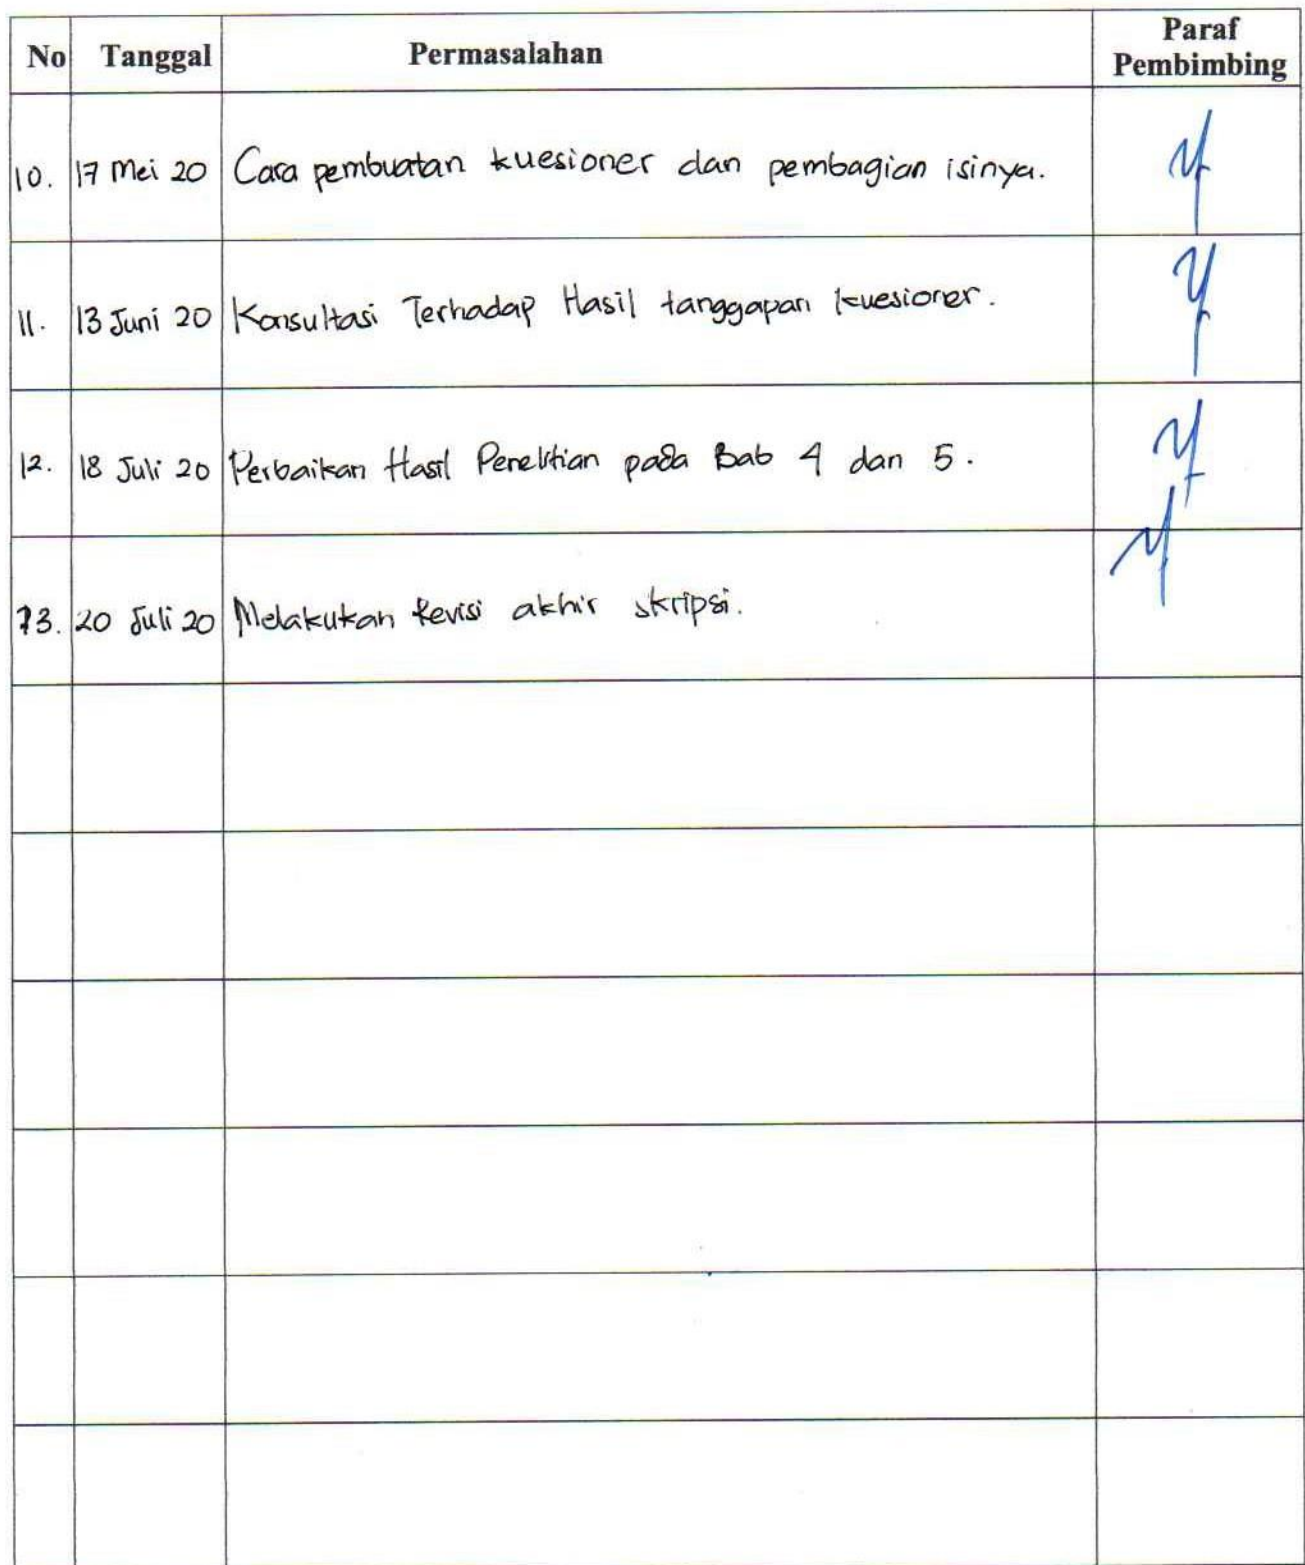 No Tanggal Permasalahan Paraf Pembimbing
10. 17 Mei 20 Cara pembuatan kuesioner dan pembagian isinya.
11. 13 Juni 20 Konsultasi Terhadap Hasil tanggapan kuesioner.
12. 18 Juli 20 Perbaikan Hasil Penelitian pada Bab 4 dan 5.
13. 20 Juli 20 Melakukan Revisi akhir skripsi.